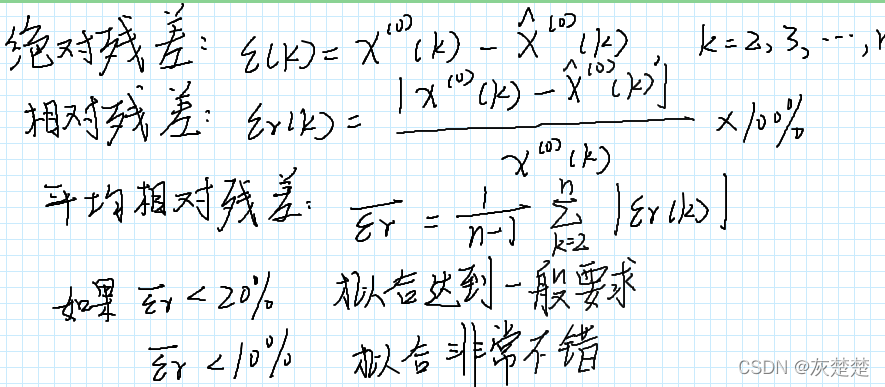 绝对残差: ε(k) = x^(0)(k) - x̂^(0)(k) k=2,3,…,n
相对残差: εr(k) = |x^(0)(k) - x̂^(0)(k)| / x^(0)(k) ×100%
平均相对残差: ε̅r̅ = 1/(n-1) ∑_{k=2}^{n} |εr(k)|
如果 ε̅r̅ < 20% 拟合达到一般要求
ε̅r̅ < 10% 拟合非常不错
CSDN @灰楚楚